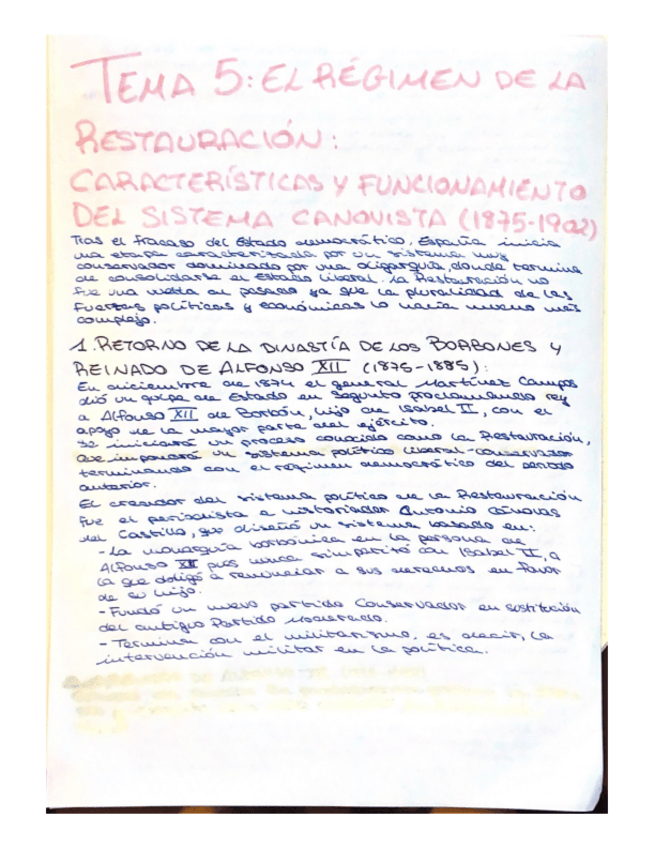 TEMA 5: EL RÉGIMEN DE LA
RESTAURACIÓN:
CARACTERÍSTICAS Y FUNCIONAMIENTO
DEL SISTEMA CANOVISTA (1875-1902)
Tras el fracaso del Estado democrático, España inicia
una etapa caracterizada por un sistema muy
conservador dominado por una oligarquía, donde termina
de consolidarse en Estado liberal. La Restauración no
fue una vuelta al pasado ya que la pluralidad de las
fuerzas políticas y económicas lo hacía mucho más
complejo.
1. RETORNO DE LA DINASTÍA DE LOS BORBONES Y
REINADO DE ALFONSO XII (1875-1885):
En diciembre de 1874 el general Martínez Campos
dió un golpe de Estado en Sagunto proclamando rey
a Alfonso XII de Borbón, hijo de Isabel II, con el
apoyo de la mayor parte del ejército.
Se iniciará un proceso conocido como la Restauración,
que impondrá un sistema político liberal-conservador
terminando con el régimen democrático del periodo
anterior.
El creador del sistema político de la Restauración
fue el periodista e historiador Antonio Cánovas
del Castillo, que diseñó un sistema basado en:
- La monarquía borbónica en la persona de
Alfonso XII pues nunca simpatizó con Isabel II, a
la que obligó a renunciar a sus derechos en favor
de su hijo.
- Fundó un nuevo partido Conservador en sustitución
del antiguo Partido Moderado.
- Termina con el militarismo, es decir, la
intervención militar en la política.